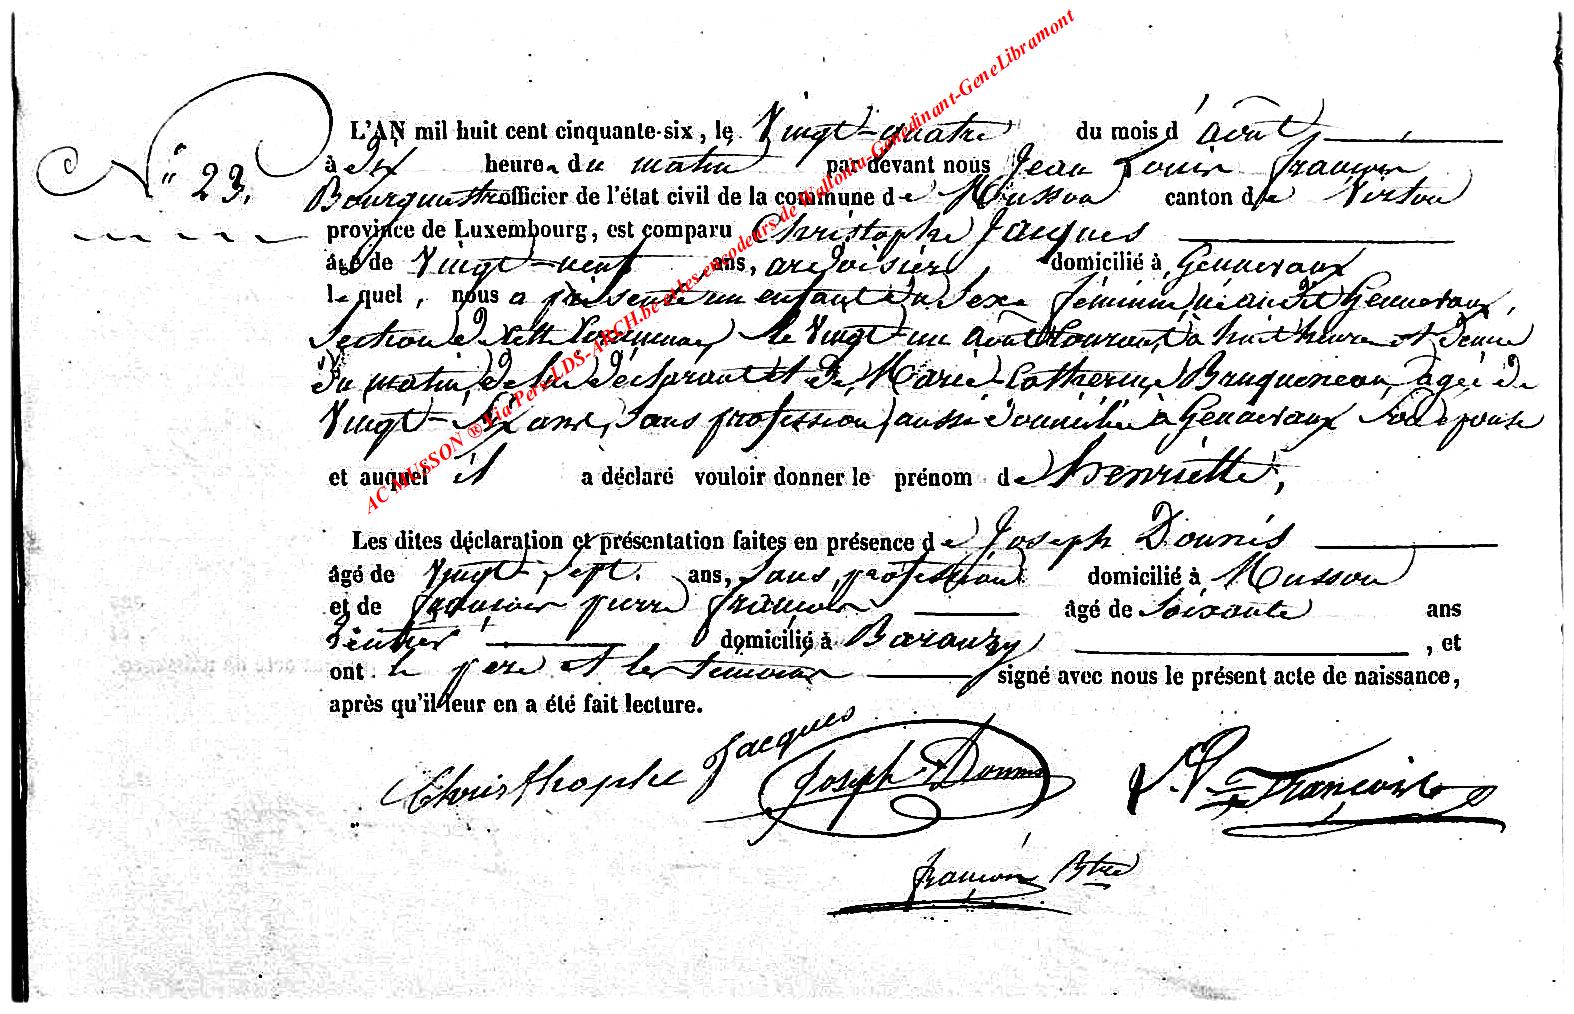 N° 23.
L'AN mil huit cent cinquante-six, le Vingt-quatre du mois d'août
à dix heures du matin par devant nous Jean Louis françois
Bourguestre officier de l'état civil de la commune de Musson canton de Virton
province de Luxembourg, est comparu Christophe Jacques
âgé de Vingt-neuf ans, ardoisier domicilié à Gennevaux
lequel, nous a présenté un enfant du Sexe féminin, née audit Gennevaux,
Section de cette Commune, le Vingt-un août Courant, à huit heures et demie
du matin, de lui déclarant et de Marie-Catherine âgée de
Vingt-Six ans, Sans profession, aussi domiciliée à Gennevaux Son épouse
et auquel il a déclaré vouloir donner le prénom de henriette,
Les dites déclaration et présentation faites en présence de Joseph Dounis
âgé de Vingt-Sept ans, Sans profession domicilié à Musson
et de françois pierre françois âgé de Soixante ans
Rentier domicilié à Baranzy, et
ont le père et les témoins signé avec nous le présent acte de naissance,
après qu'il leur en a été fait lecture.
Christhophe Jacques
Joseph Dounis
françois Btre
AC MUSSON ® Via Perv LDS-ARCH.be et les encodeurs de Wallonia-Genedinant-GeneLibramont